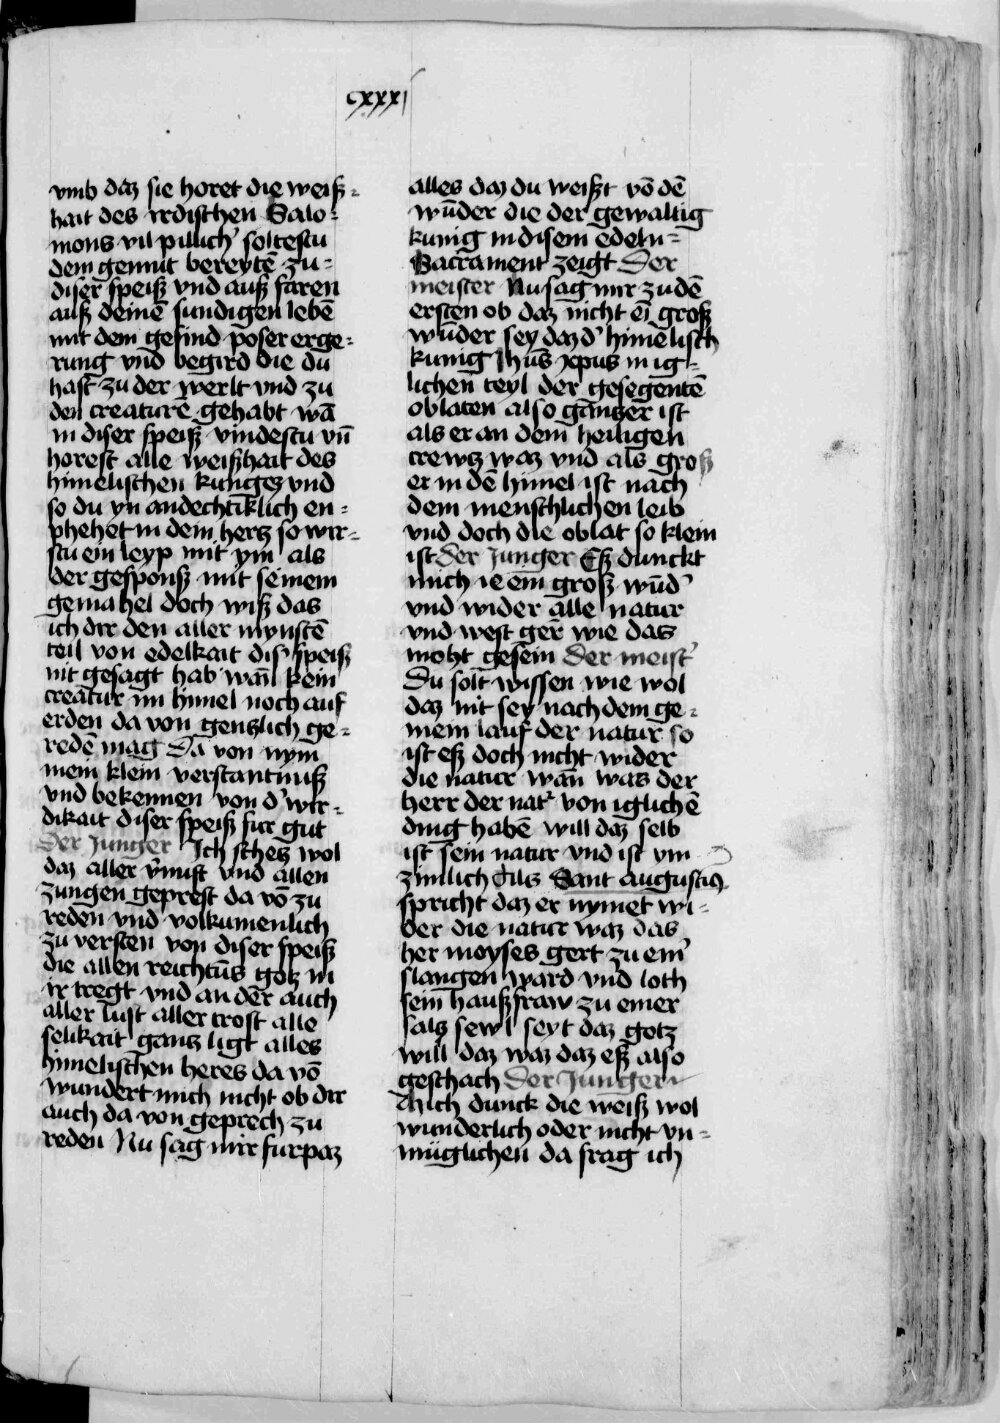 cxxxj
vmb daz sie horet die weiß=
hait des irdischen Salo=
mons vil pillich' soltestu
dem gemut bereytē zu=
diser speiß vnd auß faren
auß deinē sundigen lebē
mit dem gesind poser erge=
rung vnd begird die du
hast zu der werlt vnd zu
den creaturē gehabt wā
in diser speiß vindestu vn̄
horest alle weißhait des
himelischen kunigs vnd
so du yn andechtiklich en=
phehet in dein hertz so wir=
stu ein leyp mit ym als
der gesponß mit seinem
gemahel doch wiß das
ich dir den aller mynstē
teil von edelkait dis' speiß
nit gesagt hab wān kein
creatur im himel noch auf
erden da von gentzlich ge=
redē mag Da von nym
mein klein verstantnuß
vnd bekennen von d' wir=
dikait diser speiß fur gut
Der Junger Ich schetz wol
daz aller v̄nuft vnd allen
zungen geprest da vō zu
reden vnd volkumenlich
zu versten von diser speiß
die allen reichtūs gotz in
ir tregt vnd an der auch
aller lust aller trost alle
selikait gantz ligt alles
himelischen heres da vō
wundert mich nicht ob dir
auch da von geprech zu
reden Nu sag mir furpaz
alles daz du weißt vō dē
wūder die der gewaltig
kunig in disem edeln=
Sacrament zeigt Der
meister Nu sag mir zu dē
ersten ob daz nicht ei groß
wūder sey daz d' himelisch
kunig Jhūs xpus in ig=
lichen teyl der gesegentē
oblaten also gantzer ist
als er an dem heiligen
crewtz waz vnd als groß
er in dē himel ist nach
dem menschlichen leib
vnd doch die oblat so klein
ist Der Junger Eß dunckt
mich ie ein groß wūd'
vnd wider alle natur
vnd west ger wie das
moht gesein Der meist'
Du solt wissen wie wol
daz nit sey nach dem ge=
mein lauf der natur so
ist eß doch nicht wider
die natur wān was der
herr der nat' von iglichē
ding habē will daz selb
ist sein natur vnd ist ym
zimlich Als Sant Augustin9
spricht daz er nymet wi=
der die natur waz das
her moyses gert zu ein'
slangen ward vnd loth
sein haußfraw zu einer
saltz sewl seyt daz gotz
will daz waz daz eß also
geschach Der Junger
Mich dunck die weiß wol
wunderlich oder nicht vn=
müglichen da frag ich